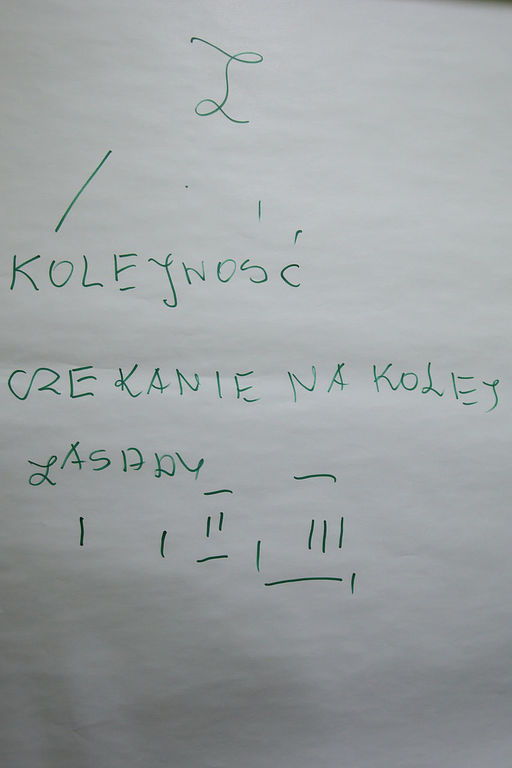 Z
KOLEJNOŚĆ
CZEKANIE NA KOLEJ
ZASADY
I, II, III,